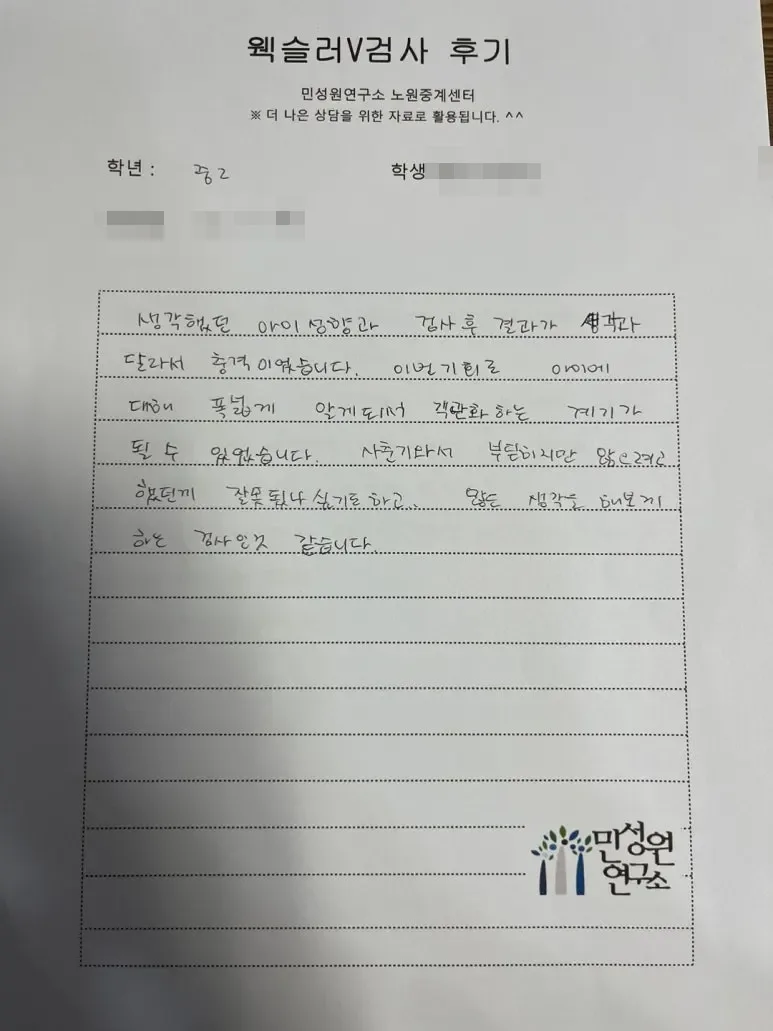 웩슬러V검사 후기
민성원연구소 노원중계센터
※ 더 나은 상담을 위한 자료로 활용됩니다. ^^
학년 : 중2
학생
생각했던 아이성향과 검사후 결과가 생각과
달라서 충격이였습니다. 이번기회로 아이에
대해 폭넓게 알게되서 객관화하는 계기가
될 수 있었습니다. 사춘기와서 부딪히지만 않으려고
했던게 잘못됬나 싶기도하고, 많은 생각을 해보게
하는 검사인것 같습니다.
민성원
연구소